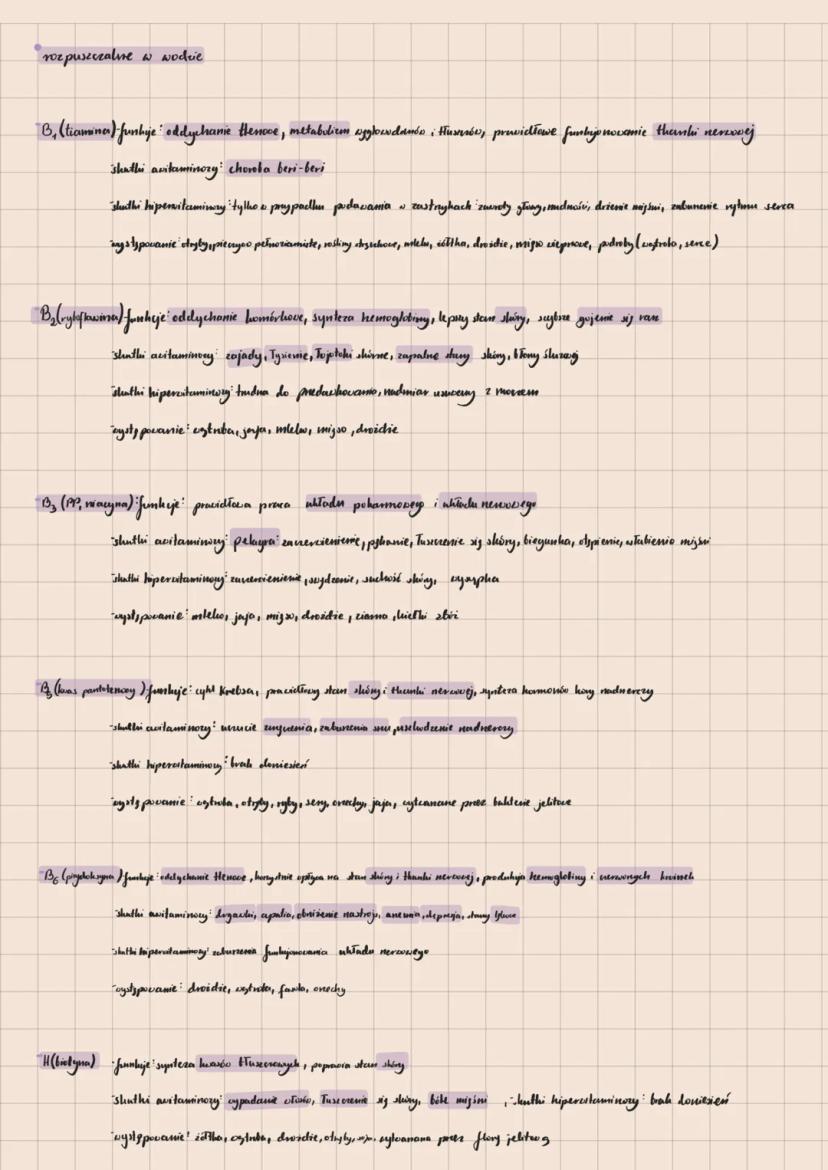 rozpuszczalne w wodzie
-B₁ (tiamina)-funkcje: oddychanie tlenowe, metabolizm węglowodanów i tłuszczów, prawidłowe funkcjonowanie tkanki nerwowej
-skutki awitaminozy: choroba beri-beri
-skutki hiperwitaminozy: tylko w przypadku podawania w zastrzykach: zawroty głowy, nudności, drżenie mięśni, zaburzenie rytmu serca
-występowanie: otręby, pieczywo pełnoziarniste, rośliny strączkowe, mleko, żółtka, drożdże, mięso wieprzowe, podroby (wątroba, serce)
-B₂ (ryboflawina)-funkcje: oddychanie komórkowe, synteza hemoglobiny, lepszy stan skóry, szybsze gojenie się ran
-skutki awitaminozy: zajady, łysienie, łojotoki skórne, zapalne stany skóry, błony śluzowej
-skutki hiperwitaminozy: trudna do przedawkowania, nadmiar usuwany z moczem
-występowanie: wątroba, jaja, mleko, mięso, drożdże
-B₃ (PP, niacyna): funkcje: prawidłowa praca układu pokarmowego i układu nerwowego
-skutki awitaminozy: pelagra: zaczerwienienie, pękanie, łuszczenie się skóry, biegunka, otępienie, osłabienie mięśni
-skutki hiperwitaminozy: zaczerwienienie, swędzenie, suchość skóry, wysypka
-występowanie: mleko, jaja, mięso, drożdże, ziarna, kiełki zbóż
-B₅ (kwas pantotenowy)-funkcje: cykl Krebsa, prawidłowy stan skóry i tkanki nerwowej, synteza hormonów kory nadnerczy
-skutki awitaminozy: uczucie zmęczenia, zaburzenia snu, uszkodzenie nadnerczy
-skutki hiperwitaminozy: brak doniesień
-występowanie: wątroba, otręby, ryby, sery, orzechy, jaja, wytwarzane przez bakterie jelitowe
-B₆ (pirydoksyna)-funkcje: oddychanie tlenowe, korzystnie wpływa na stan skóry i tkanki nerwowej, produkcja hemoglobiny i czerwonych krwinek
-skutki awitaminozy: drgawki, apatia, obniżenie nastroju, anemia, depresja, stany lękowe
-skutki hiperwitaminozy: zaburzenia funkcjonowania układu nerwowego
-występowanie: drożdże, wątroba, fasola, orzechy
-H (biotyna) -funkcje: synteza kwasów tłuszczowych, poprawia stan skóry
-skutki awitaminozy: wypadanie włosów, łuszczenie się skóry, bóle mięśni , -skutki hiperwitaminozy: brak doniesień
-występowanie: żółtka, wątroba, drożdże, otręby, soja, wytwarzana przez florę jelitową